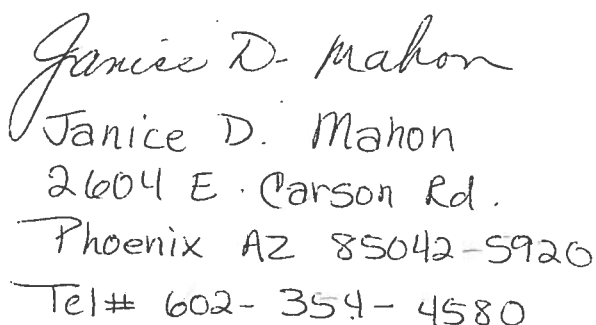 Janice D. Mahon
Janice D. Mahon
2604 E. Carson Rd.
Phoenix AZ 85042-5920
Tel# 602-354-4580